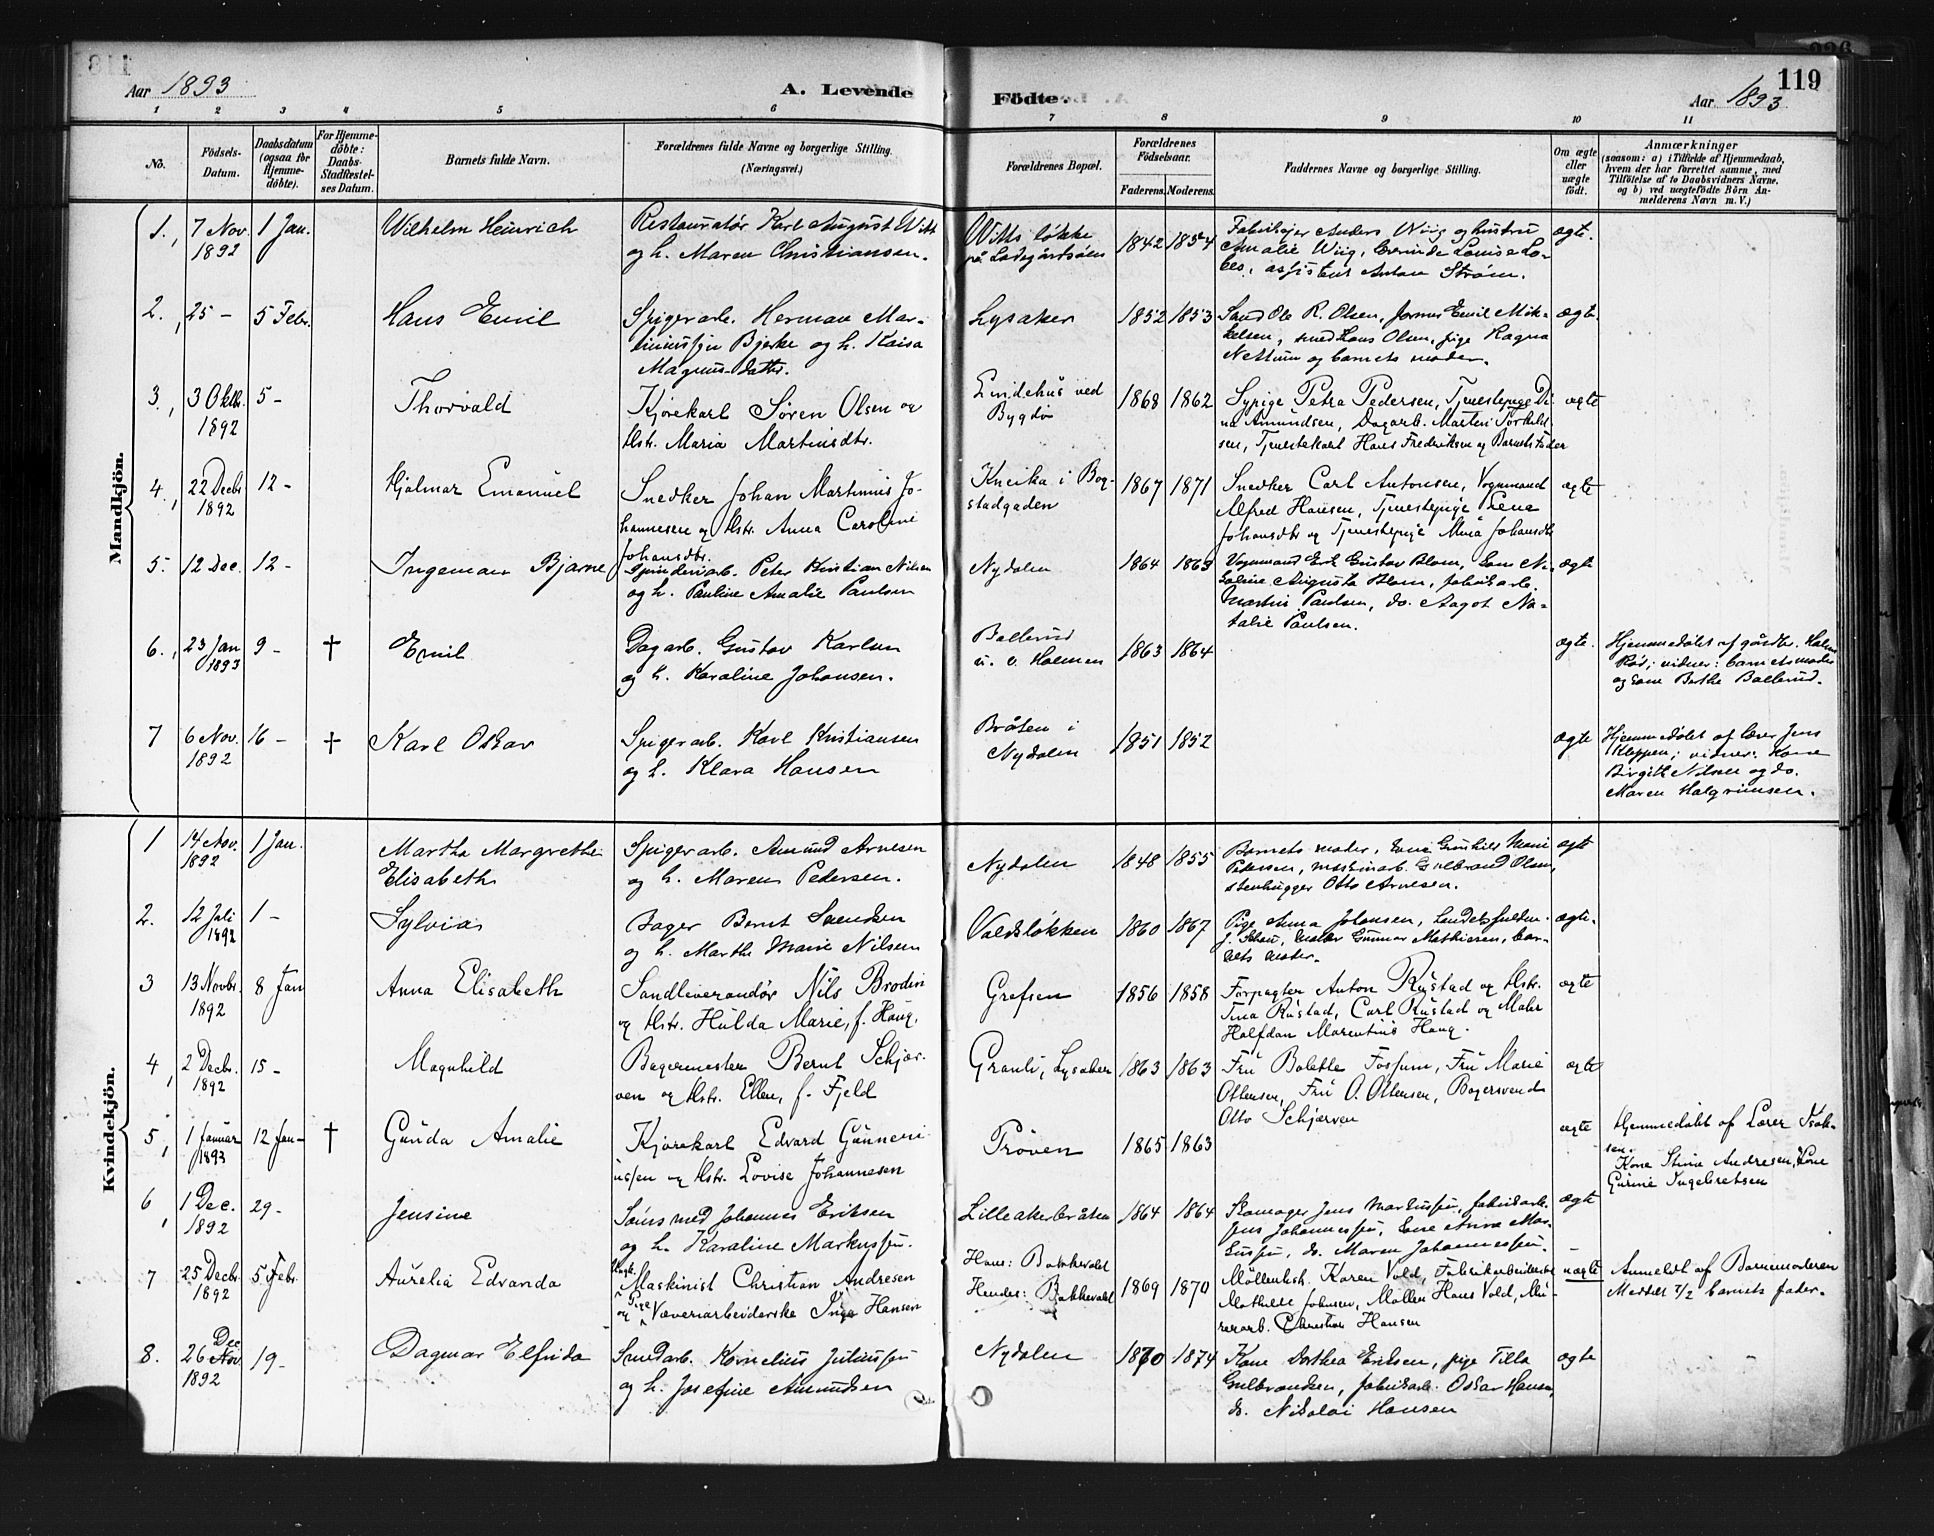 Aar 1893
A. Levende
Födte.
119
Aar 1893
1 2 3 4 5 6 7 8 9 10 11
No.
Födsels-
Datum.
Daabsdatum
(ogsaa for
Hjemme-
döbte).
For Hjemme-
döbte:
Daabs-
Stadfæstel-
ses Datum.
Barnets fulde Navn.
Forældrenes fulde Navne og borgerlige Stilling.
(Næringsvei.)
Forældrenes Bopæl.
Forældrenes
Födselsaar.
Faderens. Moderens.
Faddernes Navne og borgerlige Stilling.
Om ægte
eller
uægte
födt.
Anmærkninger
(saasom: a) i Tilfælde af Hjemmedaab,
hvem der har forrettet samme, med
Tilföielse af to Daabsvidners Navne,
og b) ved uægtefödte Börn An-
melderens Navn m. V.)
Mandkjön.
1. 7 Nov. 1892
1 Jan.
Wilhelm Heinrich
Restauratør Karl August Witt
og h. Maren Christiansen.
Witts løkke
på Ladegårdsøen
1842 1854
Fabrikejer Anders Wiig og hustru
Amalie Wiig,
assistent Anton Strøm.
ægte.
2. 25 -
5 Febr.
Hans Emil
Spigerarb. Herman Mar-
tiniussen Bjerke og h. Kaisa
Magnus-datter.
Lysaker
1852 1853
Ole R. Olsen, Emil Mik-
kelsen, smed Hans Olsen, pige Ragna
Nettum og barnets moder.
ægte.
3. 3 Oktbr. 1892
5 -
Thorvald
Kjørekarl Søren Olsen og
Hstr. Maria Martinsdtr.
Lindehus ved
Bygdø
1868 1862
Sypige Petra Pedersen, Tjenestepige Di-
na Amundsen, Dagarb. Martin Torkild-
sen, Tjenestekarl Hans Frederiksen og Barnets Fader
ægte
4. 22 Decbr 1892
12 -
Hjalmar Emanuel
Snedker Johan Martinius Jo-
hannesen og Hstr. Anna Caroline
Johansdtr.
Kneika i Bog-
stadgaden
1867 1871
Snedker Carl Antonsen, Vognmand
Alfred Hansen, Tjenestepige Lena
Johansdtr og Tjenestepige Mina Johansdtr
ægte
5. 12 Dec.
12 -
Ingeman Bjarne
Spinderiarb. Peter Kristian Nilsen
og h. Pauline Amalie Paulsen
Nydalen
1864 1863
Vognmand Erik Gustav Blom, kone
Augusta Blom, fabrikarb.
Martin Paulsen, do. Aagot Na-
talie Paulsen.
ægte
6. 23 Jan 1893
9 -
†
Emil
Dagarb. Gustav Karlsen
og h. Karoline Johansen.
Ballerud
u. v. Holmen
1863 1864
ægte.
Hjemmedøbt af gårdbr.
vidner: barnets moder
og kone Berthe Ballerud.
7 6 Nov. 1892
16 -
†
Karl Oskar
Spigerarb. Karl Kristiansen
og h. Klara Hansen
Bråten i
Nydalen
1851 1852
ægte
Hjemmedøbt af lærer Jens
Kleppen; vidner: Kone
Birgitte Nilsen og do.
Maren Halgrimsen.
Kvindekjön.
1 14 Nov. 1892
1 Jan.
Martha Margrethe
Elisabeth
Spigerarb. Amund Arnesen
og h. Maren Pedersen.
Nydalen
1848 1855
Barnets moder, kone Gunhild Marie
Pedersen, maskinarb. Gulbrand Olsen,
stenhugger Otto Arnesen.
ægte
2. 12 Juli 1892
1 -
Sylvia
Bager Bernt Svendsen
og h. Marthe Marie Nilsen
Valdsløkken
1860 1867
Pige Anna Johansen,
maler Gunnar Mathiesen, bar-
nets moder.
ægte.
3 13 Novbr. 1892
8 Jan
Anna Elisabeth
Sandleverandør Nils Brodin
og Hstr. Hulda Marie, f. Haug.
Grefsen
1856 1858
Forpagter Anton Rustad og Hstr.
Tina Rustad, Carl Rustad og Maler
Halfdan Marentius Haug.
ægte
4, 2 Decbr. 1892
15 -
Magnhild
Bagermester Bernt Schjer-
ven og Hstr. Ellen, f. Fjeld
Granli, Lysaker
1863 1863
Fru Bolette Fossum, Fru Marie
Ottensen, Fru O. Ottensen, Bagersvend
Otto Schjerven
ægte
5, 1 Januar 1893
12 Jan -
†
Gunda Amalie
Kjørekarl Edvard Gunneri-
ussen og Hstr. Lovise Johannesen
Prøven
1865 1863
ægte
Hjemmedøbt af Lærer Isak-
sen.
Kone Stina Andresen, Kone
Gurine Ingebretsen
6, 1 Dec. 1892
29 -
Jensine
Johannes Eriksen
og h. Karoline Markussen.
Lilleakerbråten
1864 1864
Skomager Jens Markussen, fabrikarb.
Jens Johannessen, kone Anna Mar-
kussen, do. Maren Johannessen.
ægte
7 25 Decbr 1892
5 Febr.
Aurelia Edvanda
Ungk. Maskinist Christian Andresen
og Pige Væveriarbeiderske Inga Hansen
Hans: Bakkevold
Hendes: Bakkevold
1869 1870
Møllerhstr. Karen Vold, Fabrikarbeiderske
Mathilde Johnsen, Møller Hans Vold, Mu-
rerarb. Christian Hansen
uægte
Anmeldt af Barnemoderen
Meddelt 7/2 barnets fader.
8. 26 Nov. Dec 1892
19 -
Dagmar Elfrida
Smedarb. Kornelius Juliussen
og h. Josefine Amundsen
Nydalen
1870 1874
Kone Dorthea Eriksen, pige Tilla
Gulbrandsen, fabrikarb. Oskar Hansen,
do. Nikolai Hansen
ægte